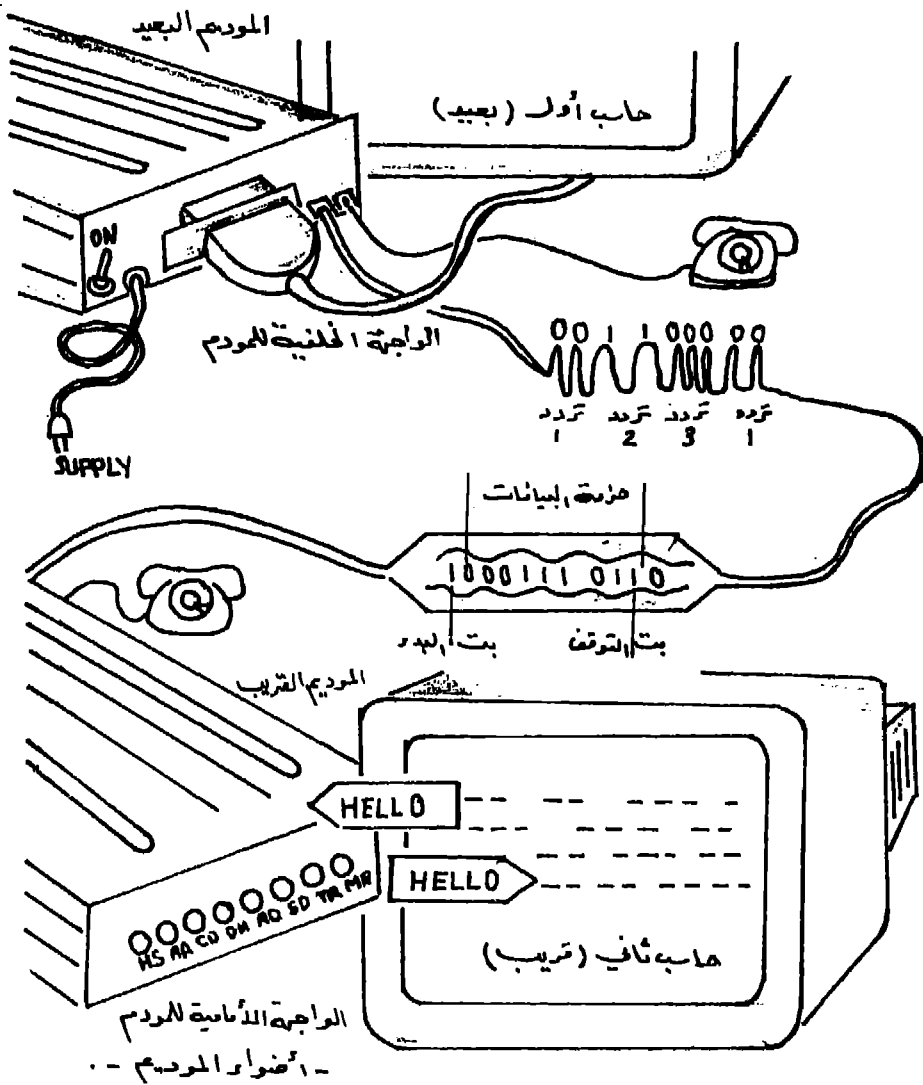 الموديم البعيد
حاسب أول (بعيد)
ON
الواجهة الخلفية للمودم
SUPPLY
0 0 1 1 0 0 0 0 0
تردد تردد تردد تردد
1 2 3 1
حزمة البيانات
1 0 0 0 1 1 1 0 1 1 0
بت البدء بت التوقف
الموديم القريب
HELLO
HELLO
HS AA CD OH RD SD TR MR
حاسب ثاني (قريب)
الواجهة الأمامية للمودم
- أضواء الموديم - .